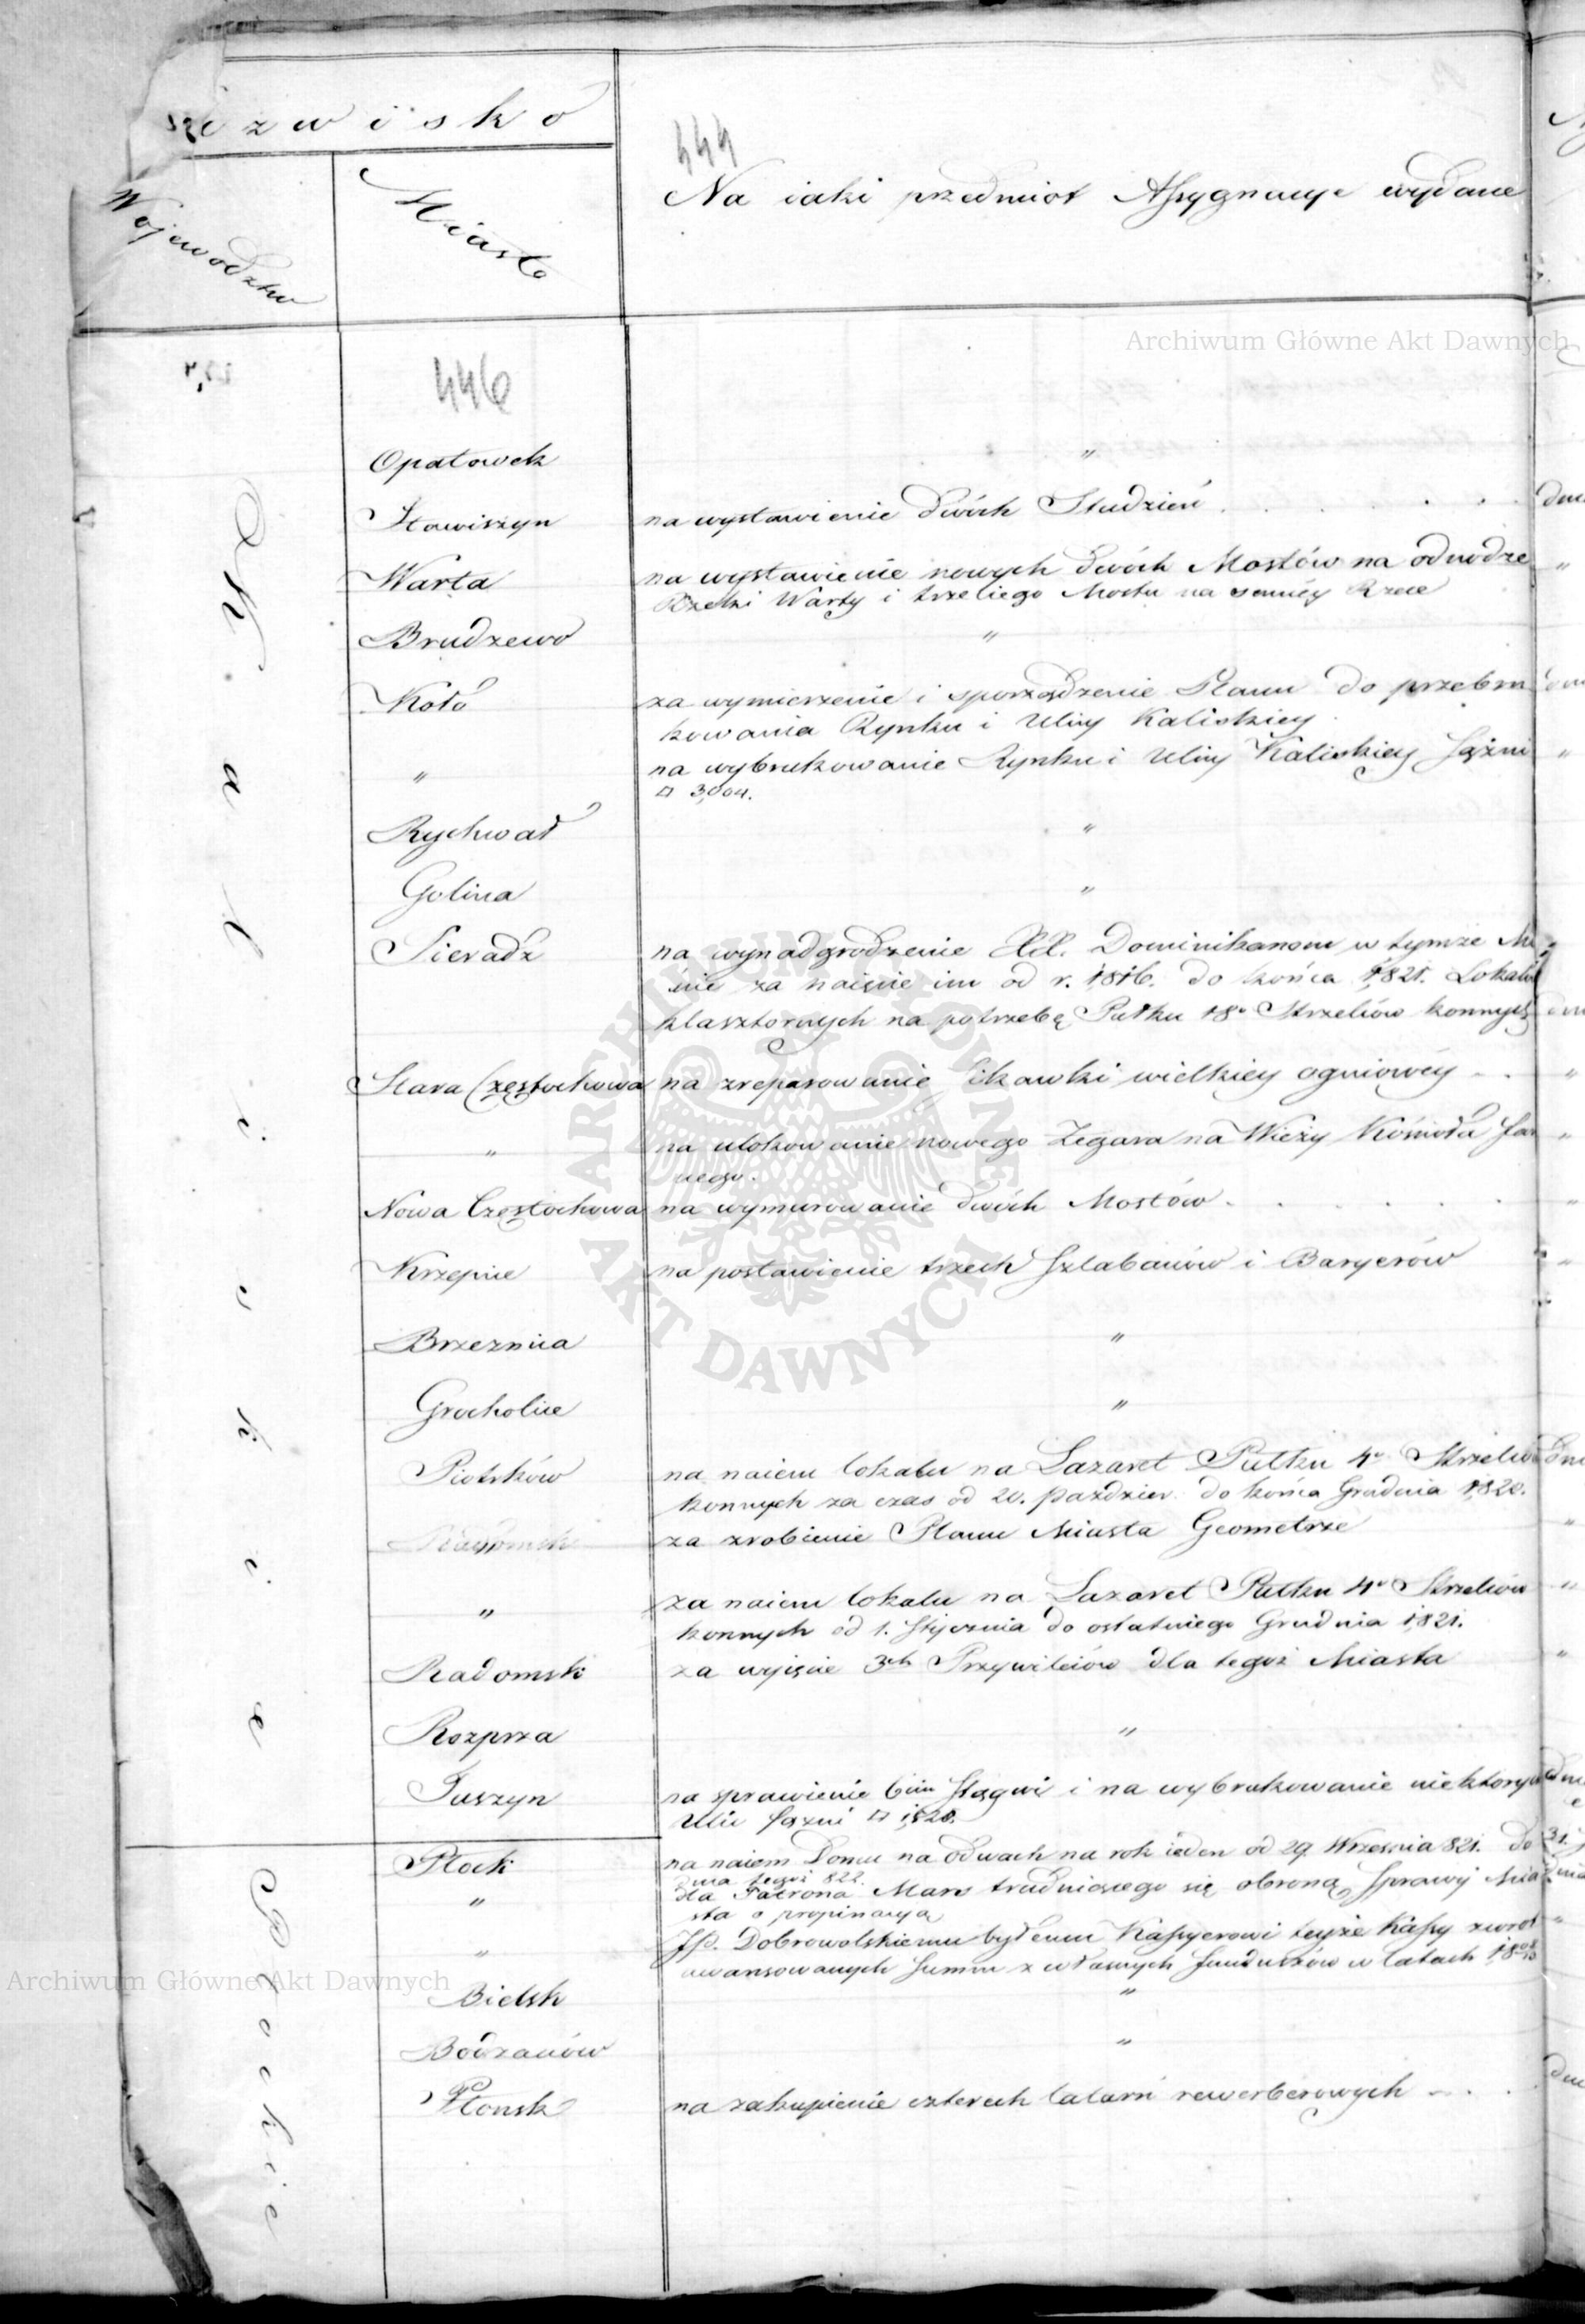 zwisko
444
Województwo
Miasto
Na iaki przedmiot Assygnacye wydane
446
Kaliskie
Opatowek "
Stawiszyn na wystawienie dwóch Studzień . . . .
Warta na wystawienie nowych dwóch Mostów na odnodze "
Rzeki Warty i trzeciego Mostu na saméy Rzece
Brudzewo "
Koło za wymierzenie i sporządzenie Planu do przebru
kowania Rynku i Ulicy Kaliskiey
" na wybrukowanie Rynku i Ulicy Kaliskiey Sążni "
□ 3,004.
Rychwał "
Golina "
Sieradz na wynadgrodzenie XX. Dominikanom w tymże Mi
ście za naięcie im od r. 1816. do końca 1821. Lokalów
klasztornych na potrzebę Pułku Strzelców konnych
Stara Częstochowa na zreparowanie Sikawki wielkiey ogniowéy - . "
" na ulokowanie nowego Zegara na Wieży Kościoła Far "
nego.
Nowa Częstochowa na wymurowanie dwóch Mostów . . . . . "
Krzepice na postawienie trzech Szlabanów i Baryerów "
Brzeznica "
Grocholice "
Piotrków na naiem lokalu na Lazaret Pułku 4o Strzelców
konnych za czas od 20. Paździer. do końca Grudnia 1820.
za zrobienie Planu Miasta Geometrze "
" za naiem lokalu na Lazaret Pułku 4o Strzelców "
konnych od 1. Stycznia do ostatniego Grudnia 1821.
Radomsk za wyięcie 3ch Przywileiów dla tegoż Miasta "
Rozprza "
Tuszyn na sprawienie 6ciu Stągwi i na wybrukowanie niektorych
Ulic Sązni □ 1,520.
Płockie
Płock na naiem Domu na Odwach na rok ieden od 29 Września 821. do
dnia tegoż 822.
" dla Patrona Mars trudniącego się obroną Sprawy Mia
sta o propinacyą
" JP. Dobrowolskiemu byłemu Kassyerowi teyże Kassy zwrot "
awansowanych Summ z własnych funduszów w latach
Bielsk "
Bodzanów "
Płonsk na zakupienie czterech latarń rewerberowych - . . .
Archiwum Główne Akt Dawnych
ARCHIWUM GŁÓWNE AKT DAWNYCH
Archiwum Główne Akt Dawnych